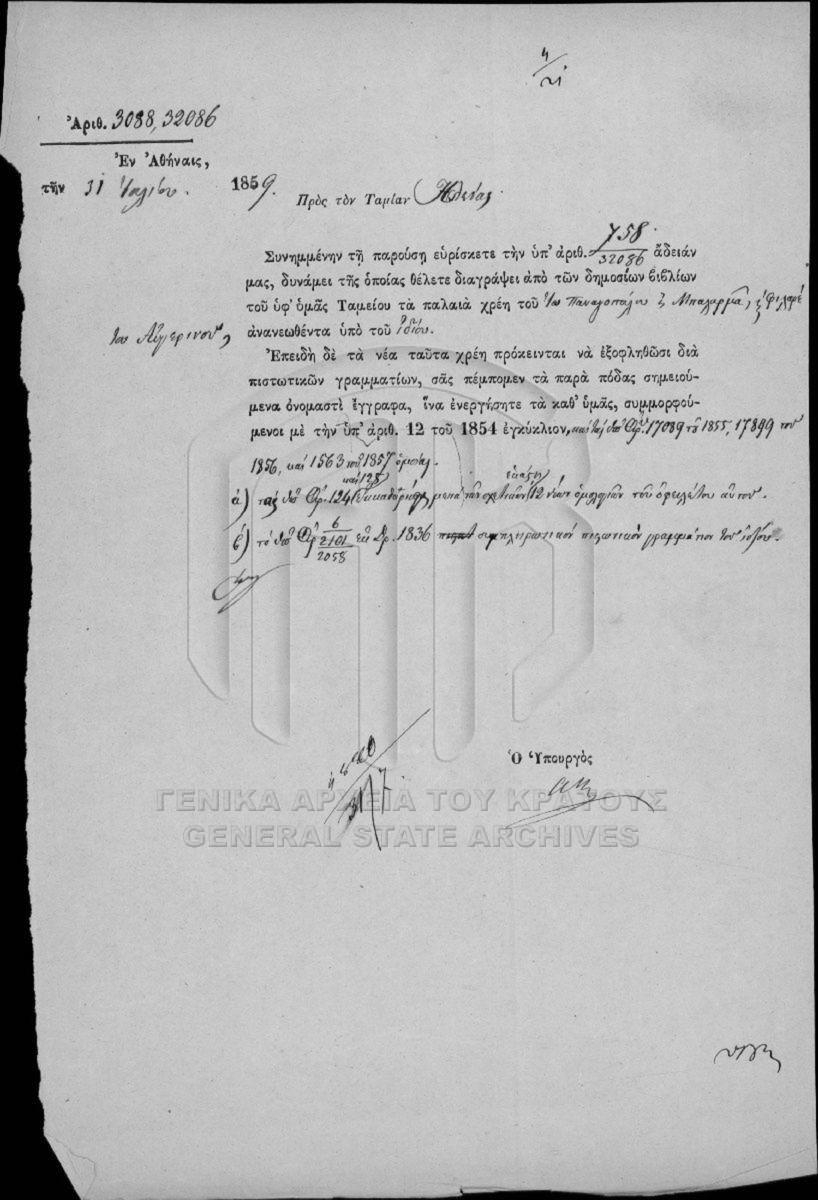 4/21
Ἀριθ. 3088, 32086
Ἐν Ἀθήναις,
τὴν 31 Ἰουλίου. 1859.
Πρὸς τὸν Ταμίαν Ἠλείας
Συνημμένην τῇ παρούσῃ εὑρίσκετε τὴν ὑπ' ἀριθ. 758/32086 ἄδειάν
μας, δυνάμει τῆς ὁποίας θέλετε διαγράψει ἀπὸ τῶν δημοσίων βιβλίων
τοῦ ὑφ' ὑμᾶς Ταμείου τὰ παλαιὰ χρέη τοῦ Ἰω Παναγοπούλου
τοῦ Αὐγερινοῦ, ἀνανεωθέντα ὑπὸ τοῦ ἰδίου.
Ἐπειδὴ δὲ τὰ νέα ταῦτα χρέη πρόκεινται νὰ ἐξοφληθῶσι διὰ
πιστωτικῶν γραμματίων, σᾶς πέμπομεν τὰ παρὰ πόδας σημειού-
μενα ὀνομαστὶ ἔγγραφα, ἵνα ἐνεργήσητε τὰ καθ' ὑμᾶς, συμμορφού-
μενοι μὲ τὴν ὑπ' ἀριθ. 12 τοῦ 1854 ἐγκύκλιον, 17089 τοῦ 1855, 17899 τοῦ
1856, καὶ 1563 τοῦ 1857 ὁμοίας.
καὶ 125 ἑκάστη
ά) τὰς ὑπ' Ἀρ. 124 μετὰ τῶν σχετικῶν 12 νέων ὁμολογιῶν τοῦ ὀφειλέτου αὐτοῦ.
β) τὸ ὑπ' Ἀρ 6/2101/2058 ἐκ Δρ. 1836 συμπληρωτικὸν πιστωτικὸν γραμμάτιον τοῦ ἰδίου.
Ὁ Ὑπουργὸς
31/7
ΓΕΝΙΚΑ ΑΡΧΕΙΑ ΤΟΥ ΚΡΑΤΟΥΣ
GENERAL STATE ARCHIVES